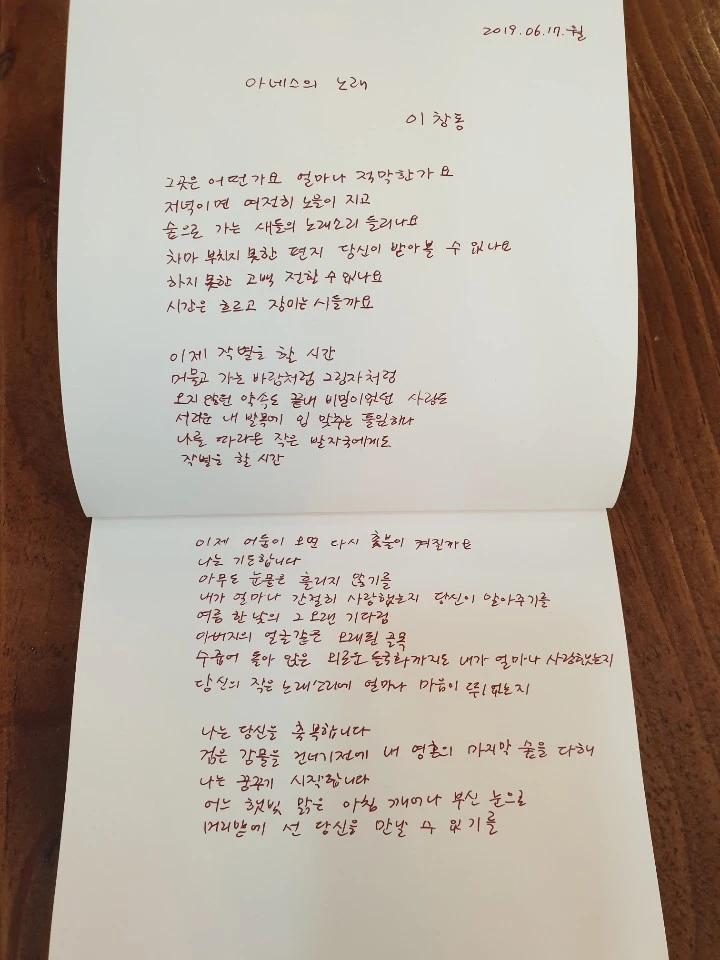 2019.06.17.월
아네스의 노래
이창동
그곳은 어떤가요 얼마나 적막한가요
저녁이면 여전히 노을이 지고
숲으로 가는 새들의 노래소리 들리나요
차마 부치지 못한 편지 당신이 받아볼 수 있나요
하지 못한 고백 전할 수 있나요
시간은 흐르고 장미는 시들까요
이제 작별을 할 시간
머물고 가는 바람처럼 그림자처럼
오지 않던 약속도 끝내 비밀이었던 사랑도
서러운 내 발목에 입 맞추는 풀잎하나
나를 따라온 작은 발자국에게도
작별을 할 시간
이제 어둠이 오면 다시 촛불이 켜질까요
나는 기도합니다
아무도 눈물은 흘리지 않기를
내가 얼마나 간절히 사랑했는지 당신이 알아주기를
여름 한낮의 그 오랜 기다림
아버지의 얼굴같은 오래된 골목
수줍어 돌아 앉은 외로운 들국화까지도 내가 얼마나 사랑했는지
당신의 작은 노래소리에 얼마나 마음이 뛰었는지
나는 당신을 축복합니다
검은 강물을 건너기전에 내 영혼의 마지막 숨을 다해
나는 꿈꾸기 시작합니다
어느 햇빛 맑은 아침 깨어나 부신 눈으로
머리맡에 선 당신을 만날 수 있기를